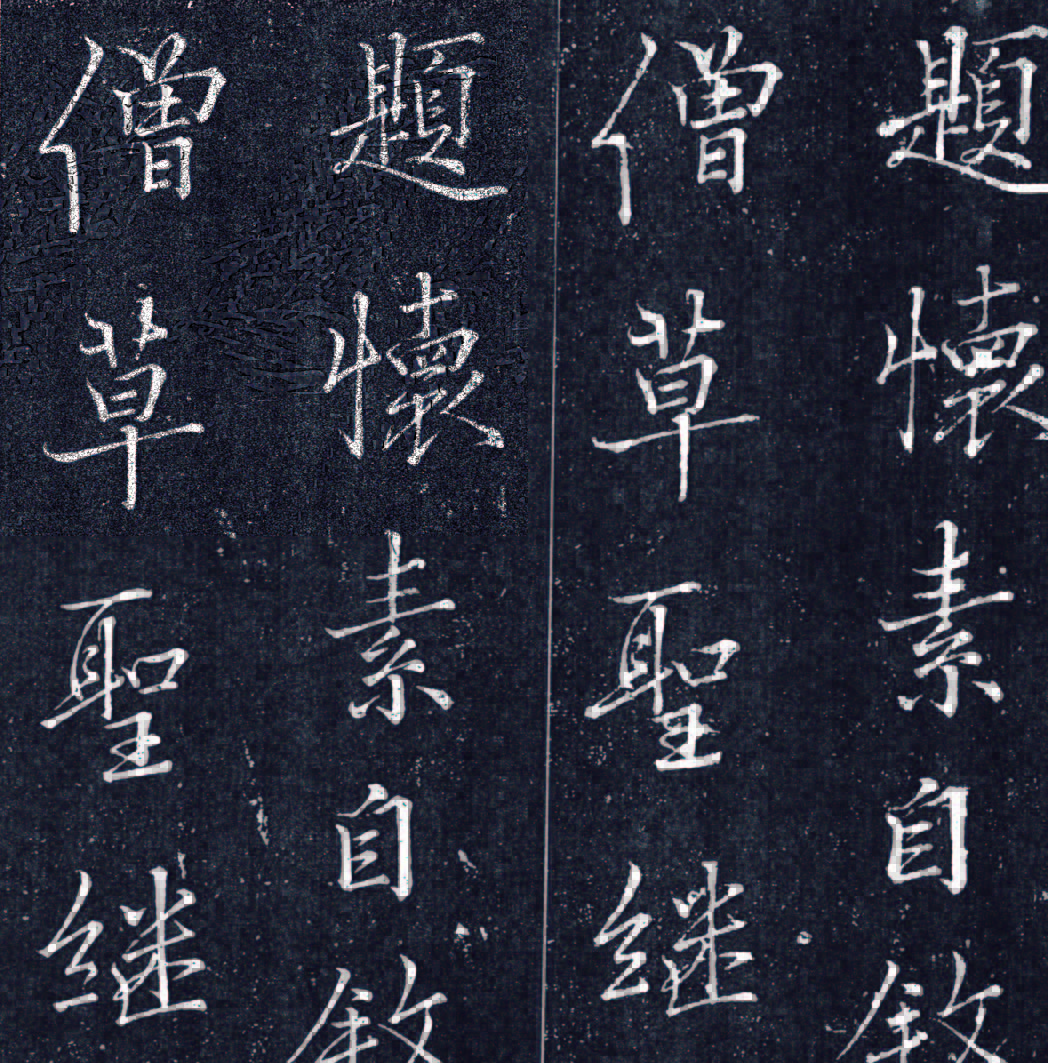 題懷素自敘
僧草聖継
題懷素自敘
僧草聖継